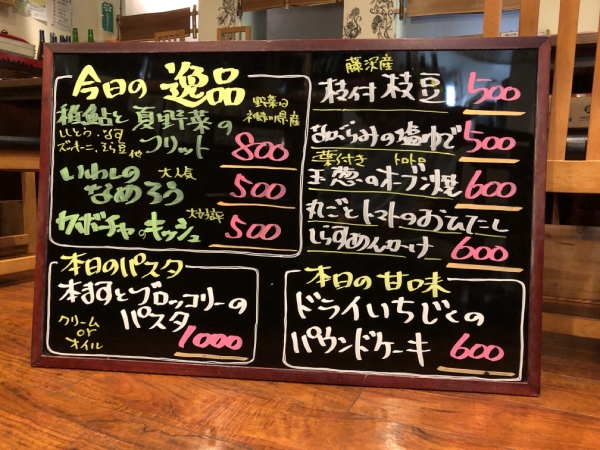 今日の 逸品
稚鮎と夏野菜の
野菜は
神奈川県産
ししとう・なす
ズッキーニ、そら豆 他
フリット 800
いわしの 大人気
なめろう 500
カボチャのキッシュ 大好評 500
本日のパスタ
本ますとブロッコリーの
パスタ
クリーム
or
オイル
1000
藤沢産
枝付 枝豆 500
塩ゆで 500
葉付き トロトロ
玉葱のオーブン焼 600
丸ごとトマトのおひたし
しらすめんかけ 600
本日の甘味
ドライいちじくの
パウンドケーキ 600